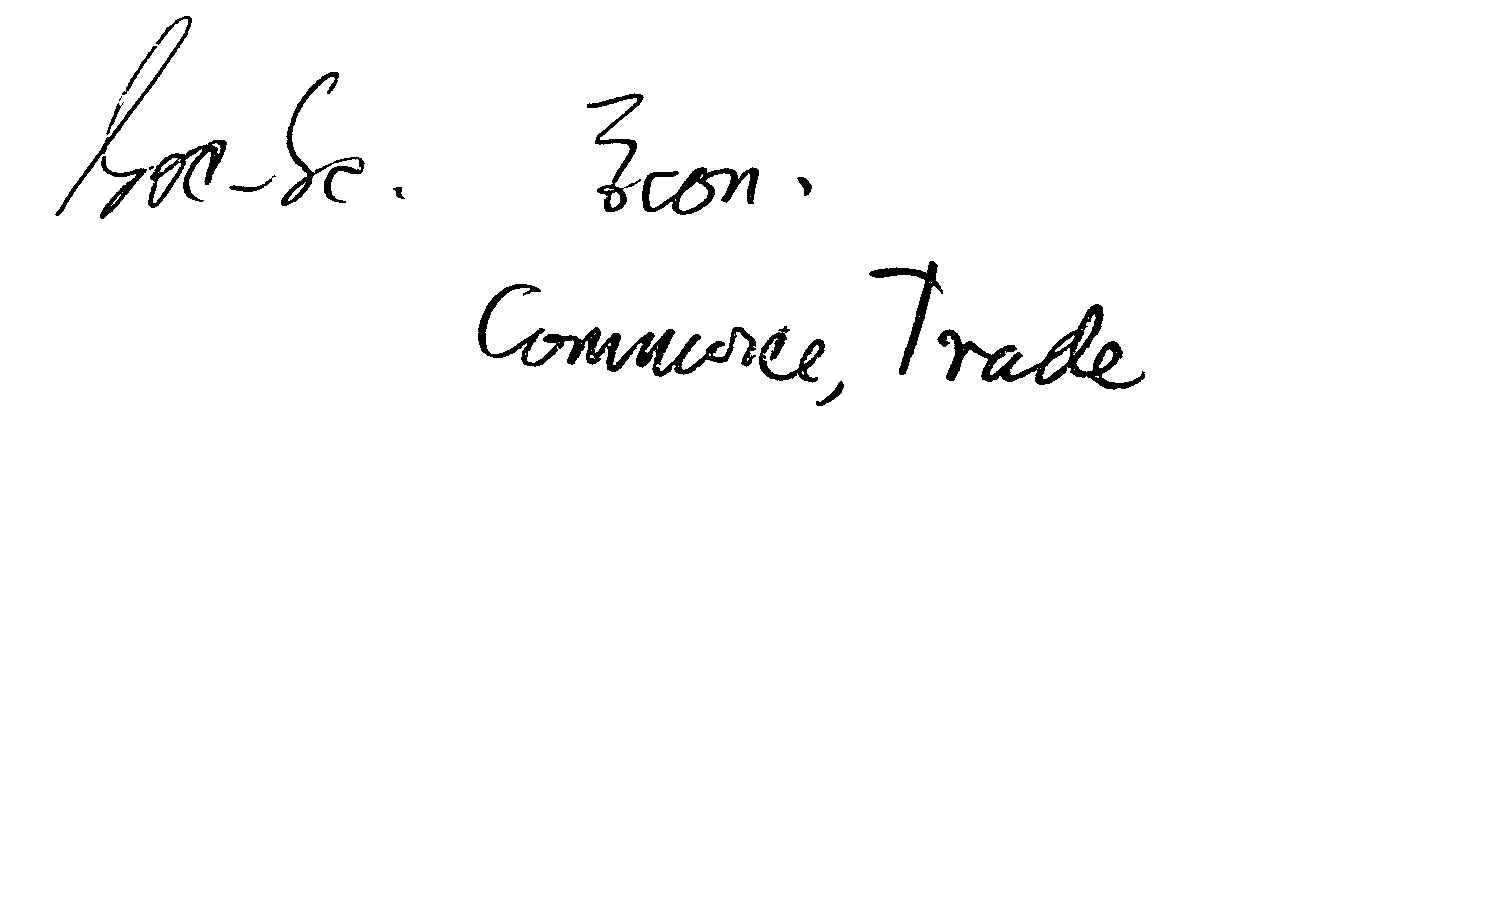 Soc-Sc. Econ.
Commerce, Trade